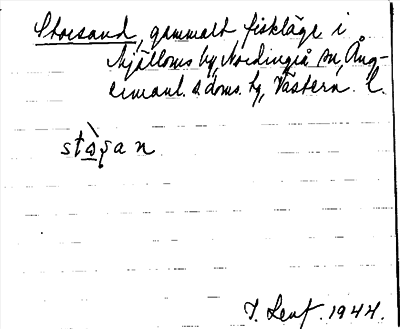 Storsand, gammalt fiskläge i
Mjälloms by, Nordingrå sn, Ång-
ermanl. s. doms. hg, Västern. l.
stɷ̀ʂan
J. Lenf. 1944.